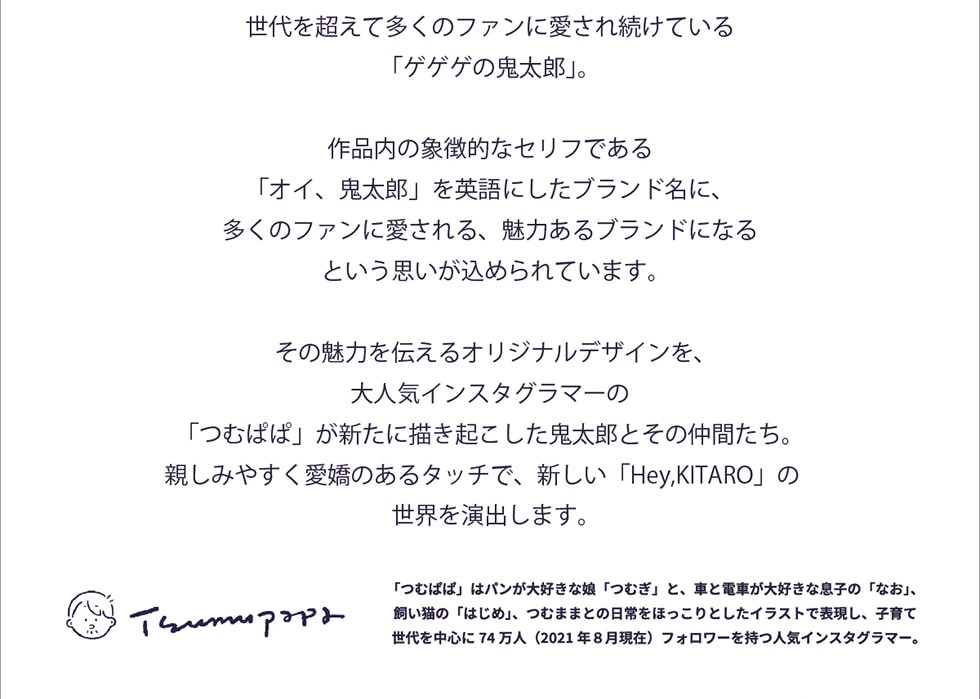 世代を超えて多くのファンに愛され続けている
「ゲゲゲの鬼太郎」。
作品内の象徴的なセリフである
「オイ、鬼太郎」を英語にしたブランド名に、
多くのファンに愛される、魅力あるブランドになる
という思いが込められています。
その魅力を伝えるオリジナルデザインを、
大人気インスタグラマーの
「つむぱぱ」が新たに描き起こした鬼太郎とその仲間たち。
親しみやすく愛嬌のあるタッチで、新しい「Hey,KITARO」の
世界を演出します。
Tsumupapa
「つむぱぱ」はパンが大好きな娘「つむぎ」と、車と電車が大好きな息子の「なお」、
飼い猫の「はじめ」、つむままとの日常をほっこりとしたイラストで表現し、子育て
世代を中心に 74 万人（2021 年８月現在）フォロワーを持つ人気インスタグラマー。